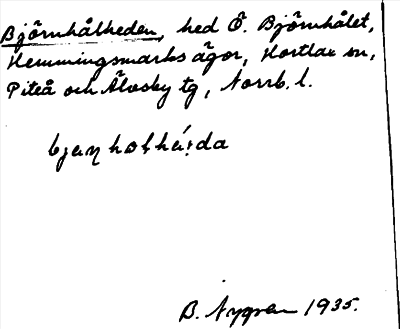 Björnhålheden, hed Ö. Björnhålet,
Hemmingsmarks ägor, Hortlax sn,
Piteå och Älvsby tg, Norrb. l.
B. Nygren 1935.